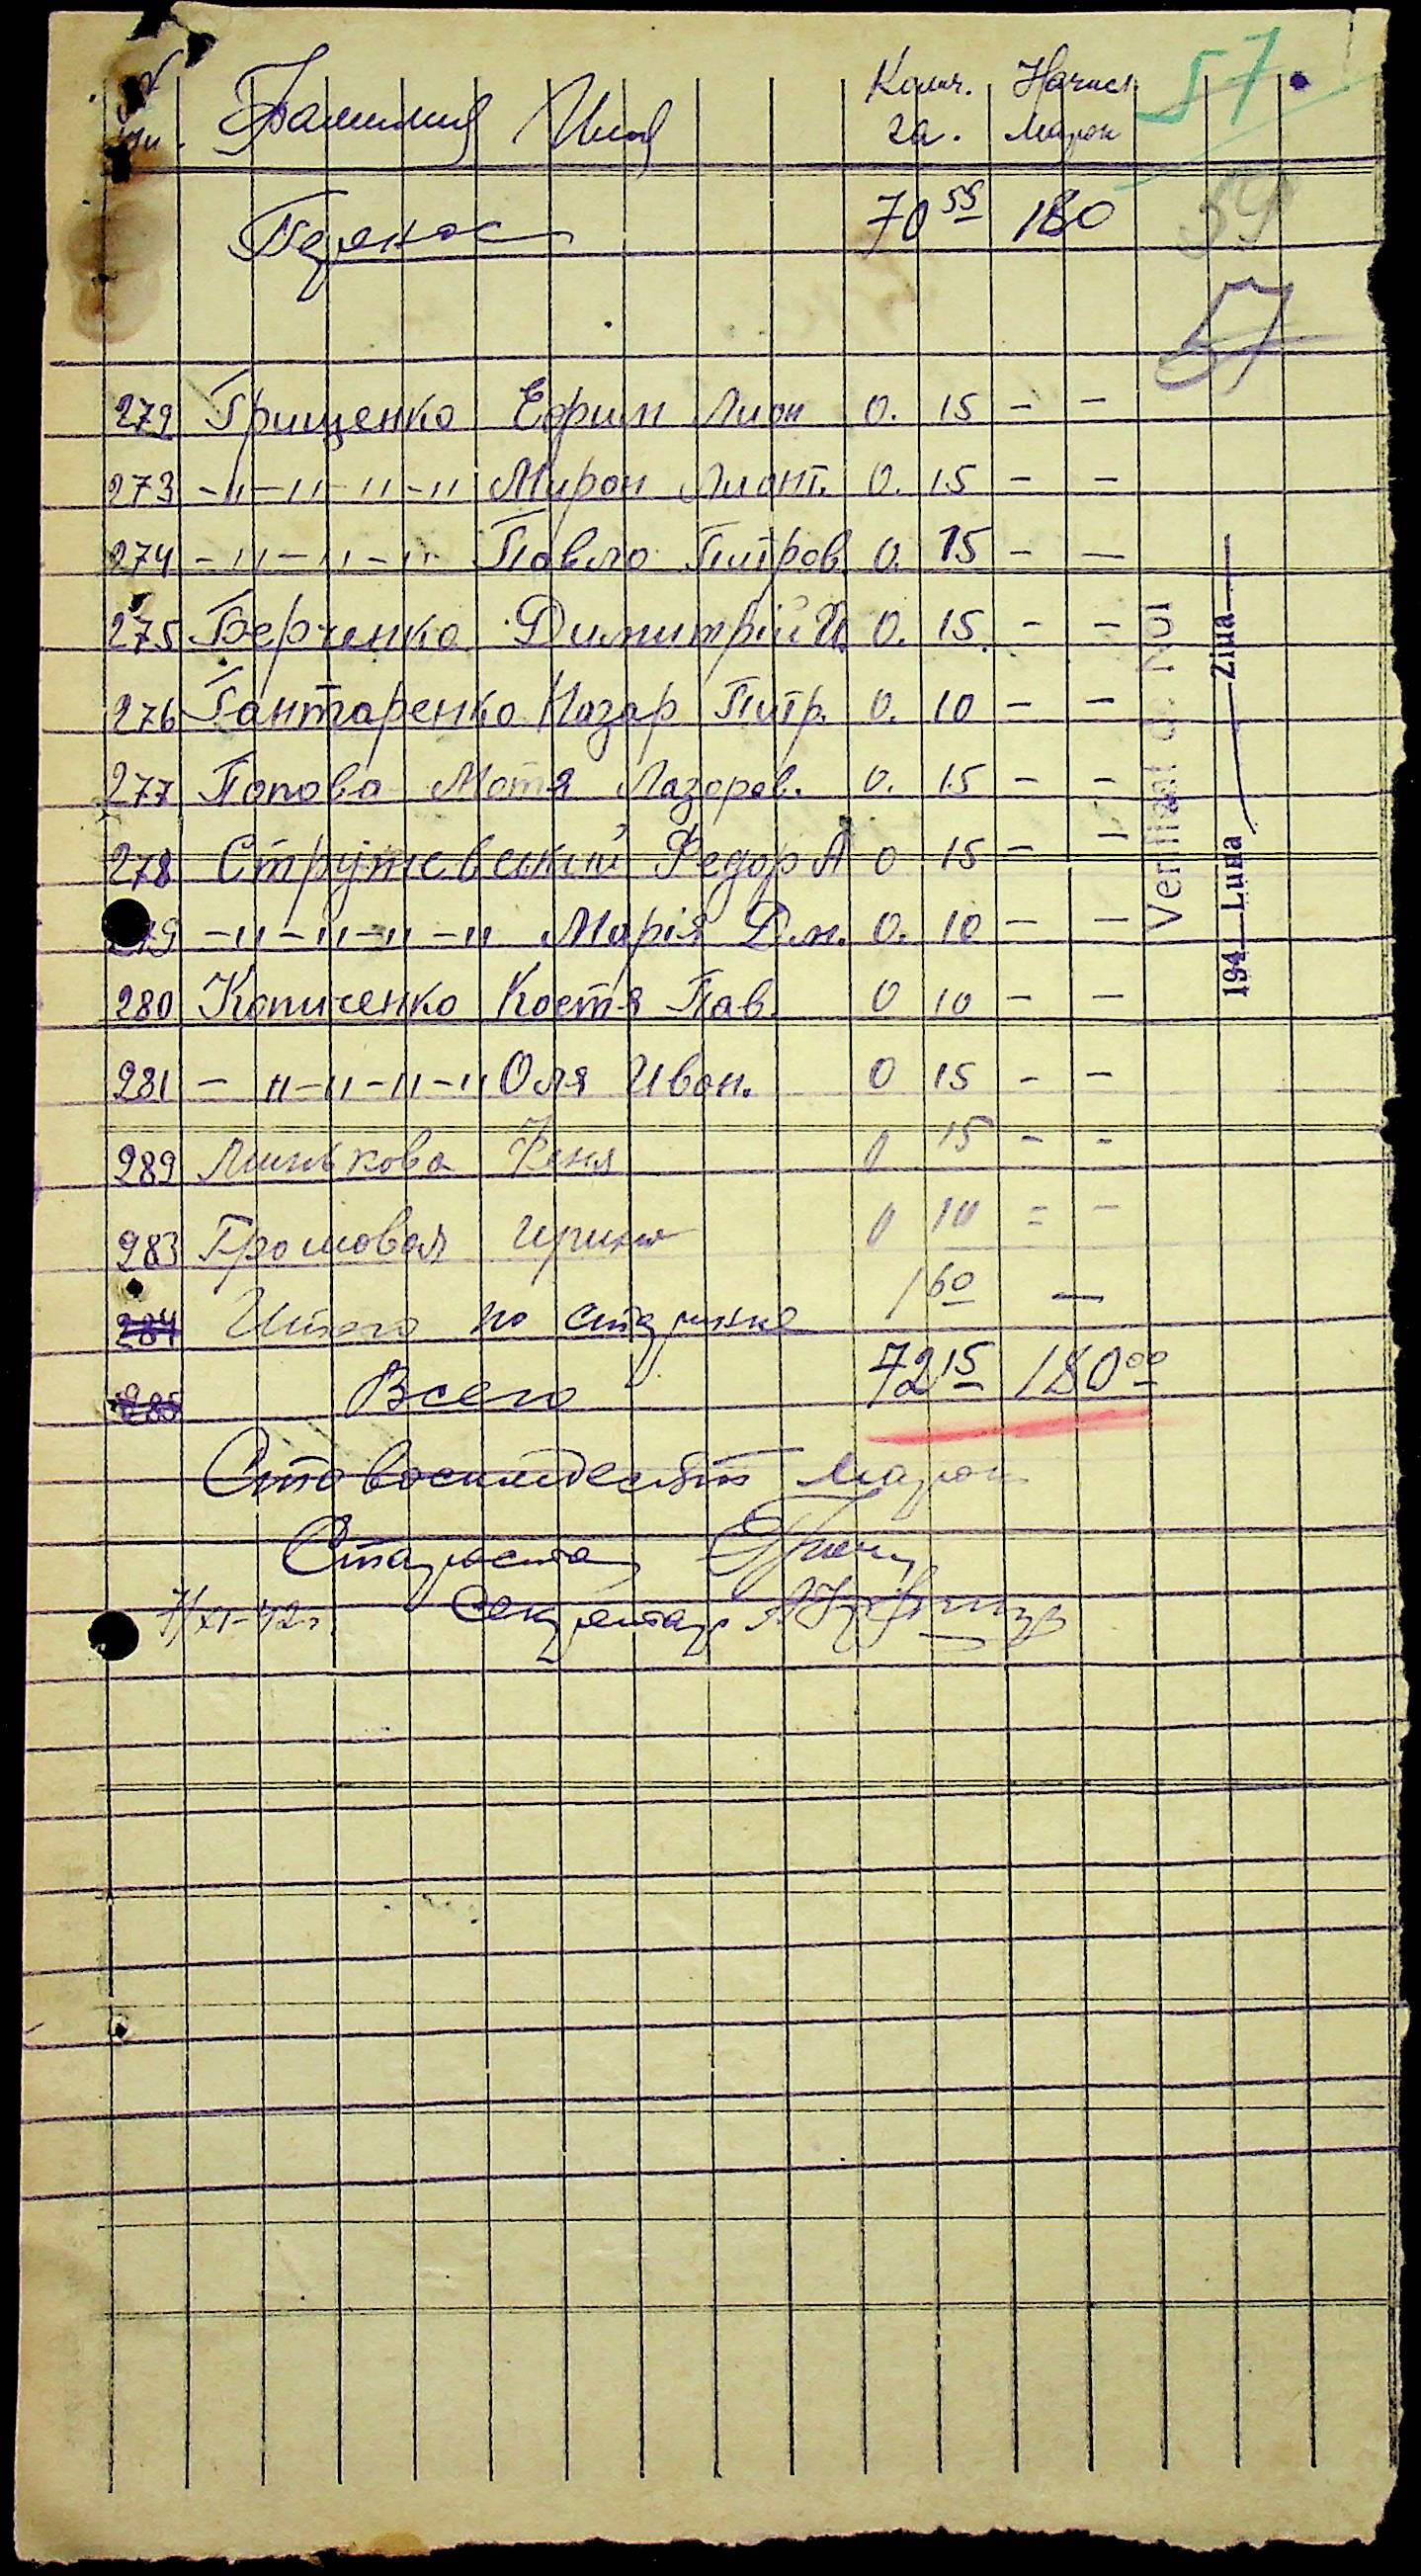 № пп. Фамилия Имя Колич. га. Начисл. марок 57
Перенос 70 55 180 59
57
272 Грищенко Ефим Лион 0. 15 - -
273 -"-"-"-" Мирон Лионт. 0. 15 - -
274 -"-"-" Павло Питров. 0. 15 - -
275 Берченко Димитрій И. 0. 15. - -
276 Гантаренко Назар Питр. 0. 10 - -
277 Попова Мотя Лазорев. 0. 15 - -
278 Стружевський Федор А 0 15 - -
279 -"-"-"-" Марія Дм. 0. 10 - -
280 Копиченко Костя Пав. 0 10 - -
281 -"-"-"-" Оля Иван. 0 15 - -
282 Линькова Феня 0 15 - -
283 Громовая Ирина 0 10 = -
284 Итого по странице 1 60 —
285 Всего 72 15 180 00
Сто восемьдесят марок
Староста
7/XI-42г. Секретарь
Verificat
194 Luna Ziua